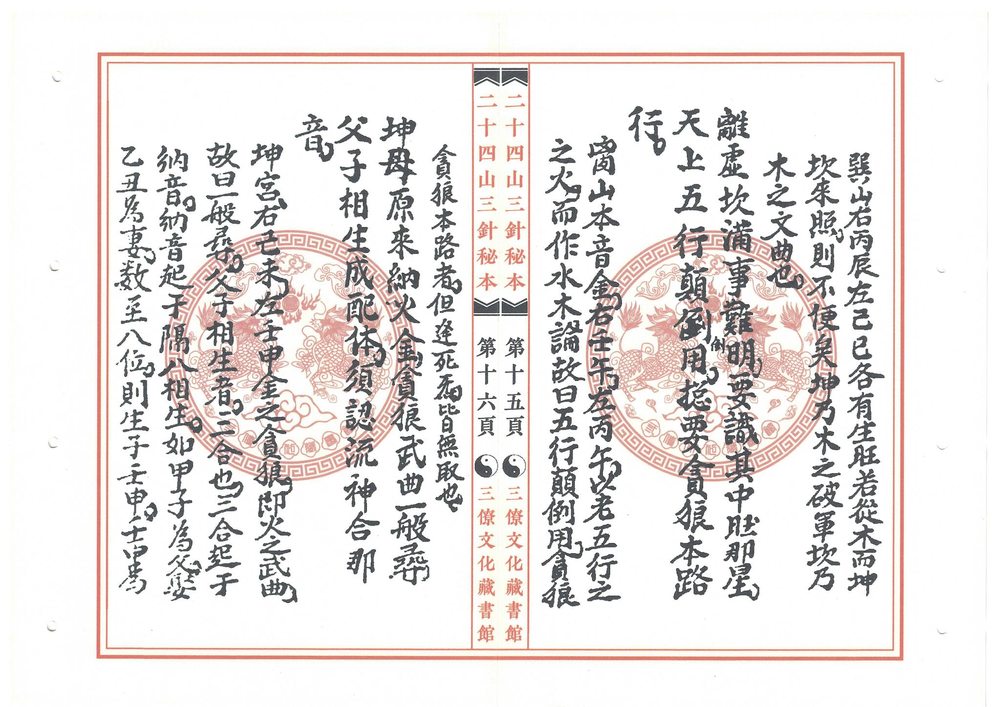 巽山右丙辰左己巳各有生旺若從木而坤
坎來照則不便矣坤乃木之破軍坎乃
木之文曲也
離虛坎滿事難明要識其中那星
天上五行顛倒用揔要貪狼本路
倒
行
山本音金右壬午左丙午以老五行之
之火而作水木論故曰五行顛倒用貪狼
二十四山三針秘本
第十五頁
三僚文化藏書館
二十四山三針秘本
第十六頁
三僚文化藏書館
貪狼本路者但逢死病皆無取也
坤母原來納火金貪狼武曲一般尋
父子相生成配体須認流神合那
音
坤宮右己未左壬申金之貪狼即火之武曲
故曰一般尋父子相生者三合也三合起于
納音納音起于隔八相生如甲子為父娶
乙丑為妻數至八位則生子壬申壬申為